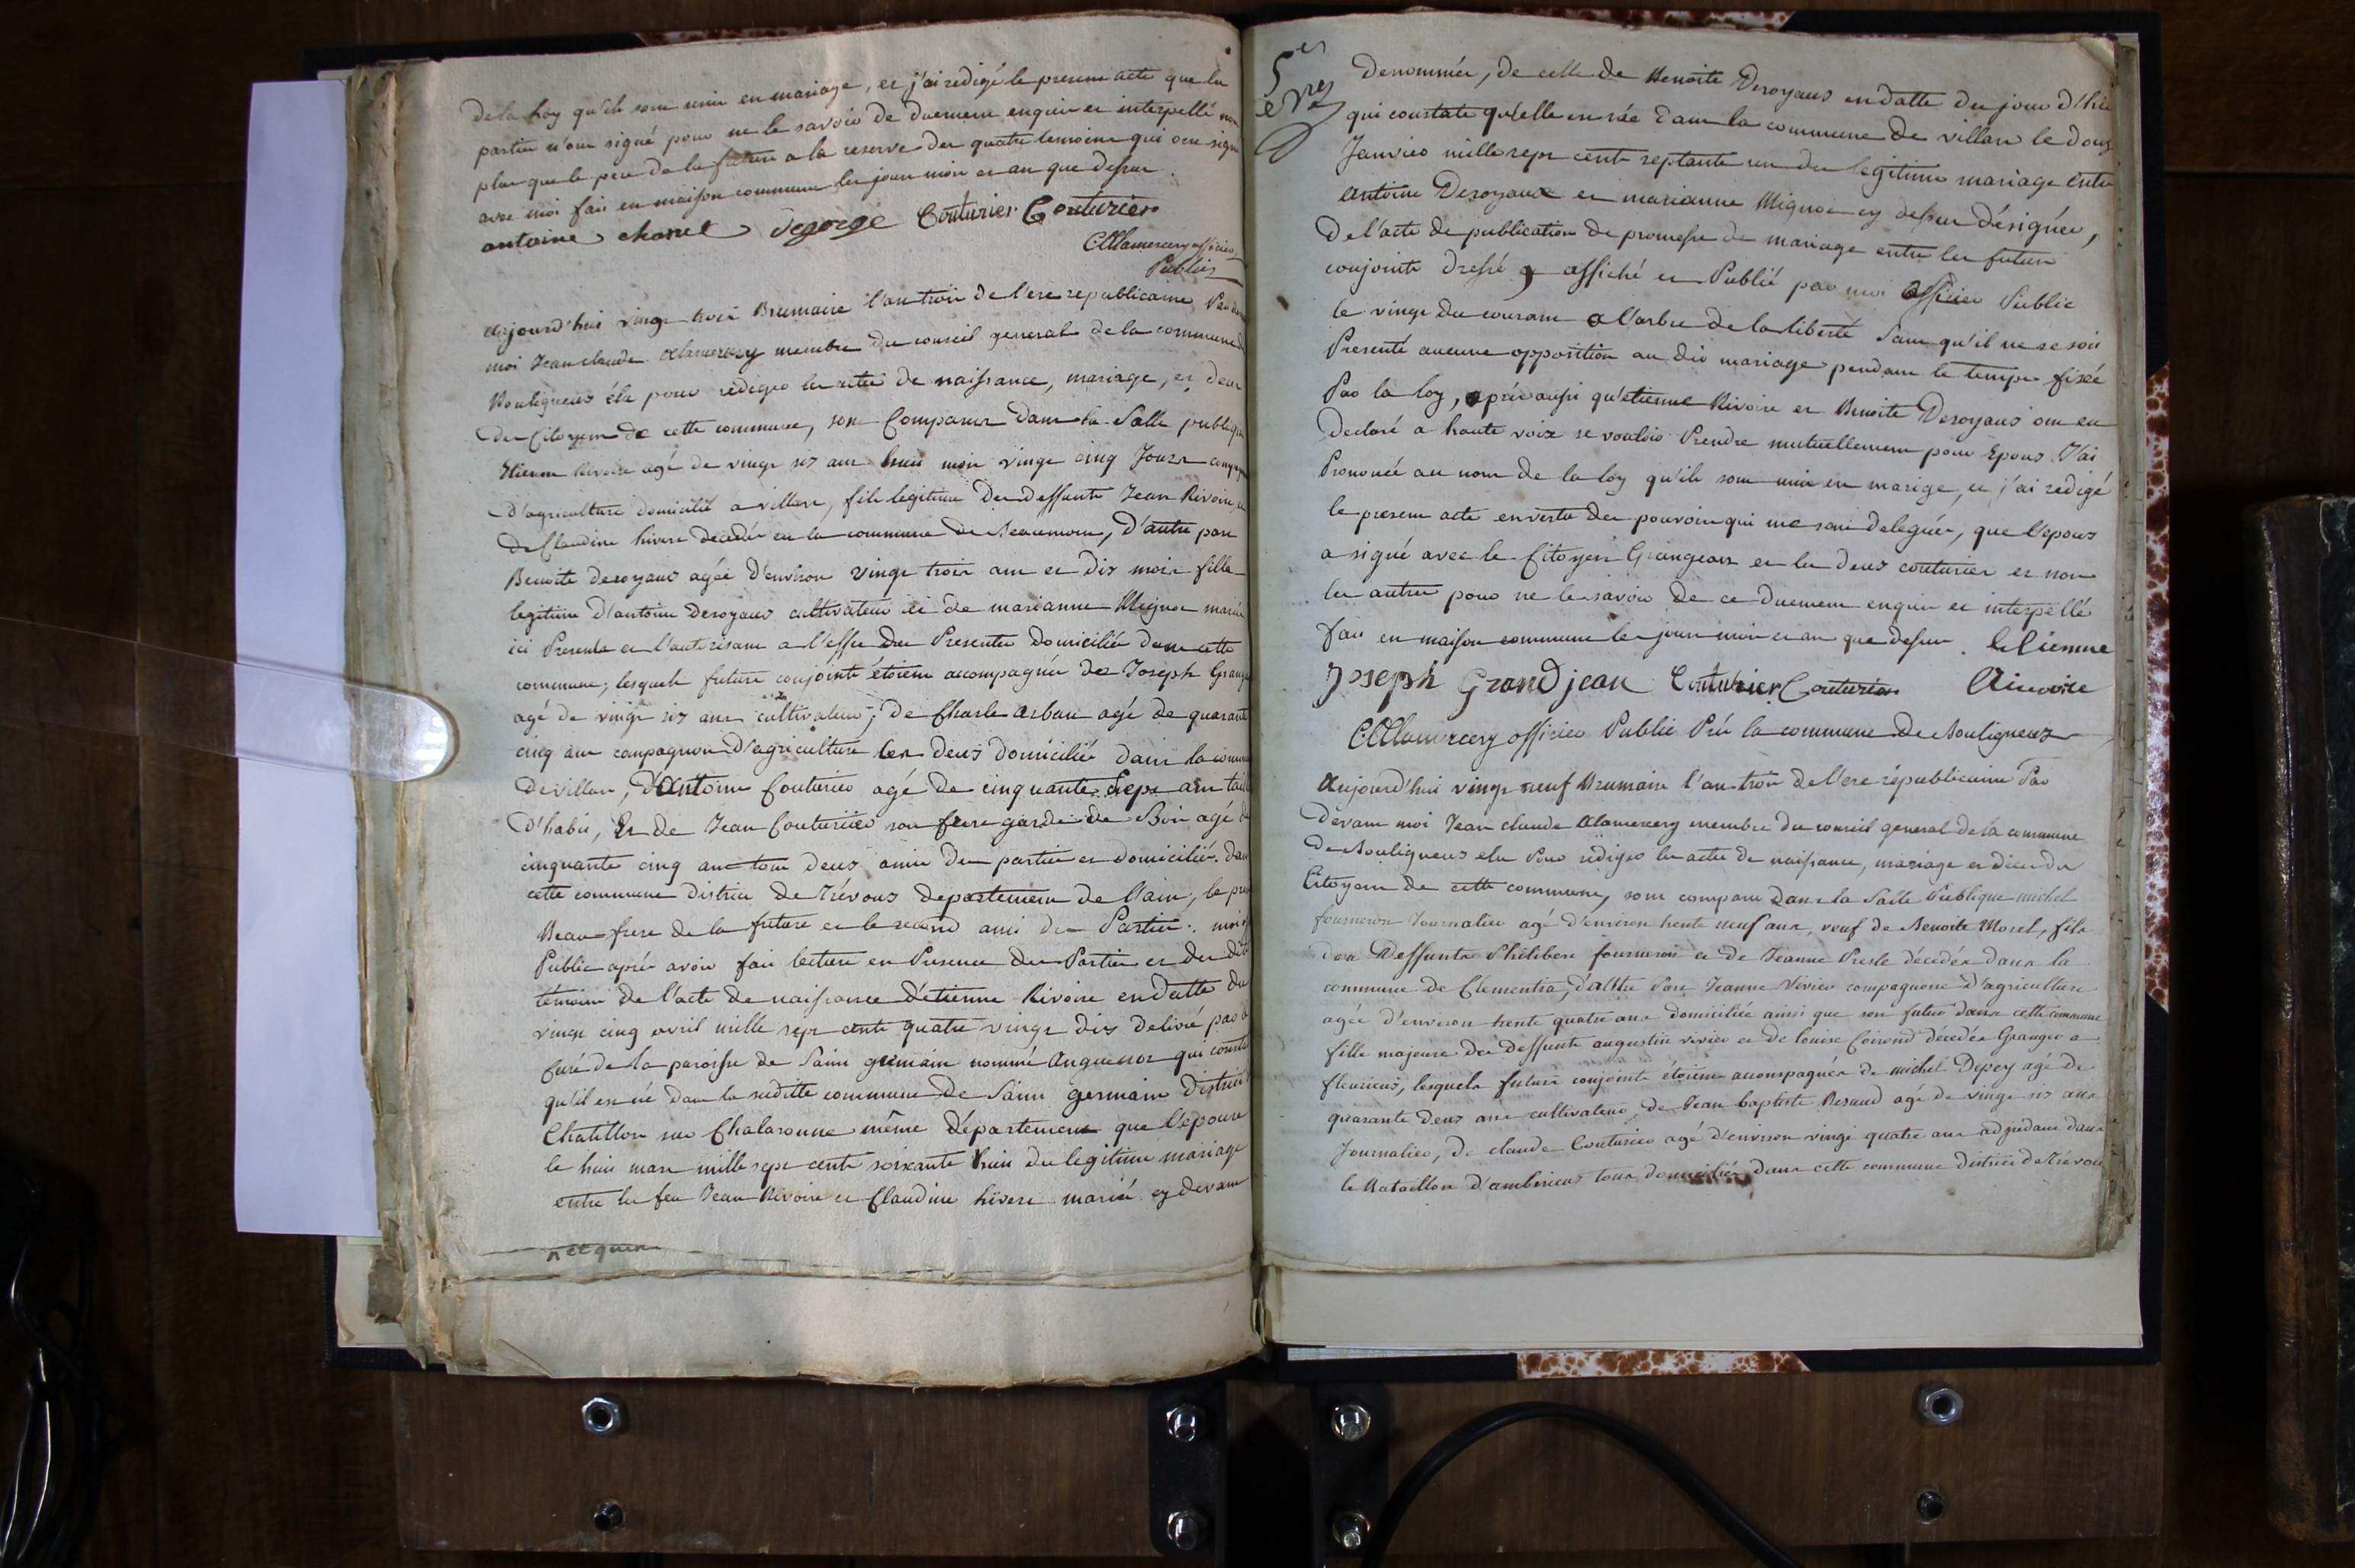 de la loy qu'ils sont unis en mariage, et j'ai redigé le present acte que les
parties n'ont signé pour ne le savoir de duement enquis et interpellé non
plus que le pere de la future a la reserve des quatre temoins qui ont signé
avec moi fait en maison commune les jour mois et an que dessus.
antoine chanel Segorge Couturier Couturier
C: Alamercery officier
Public
Aujourd'hui vingt trois Brumaire l'an trois de l'ere republicaine Par devant
moi Jean claude Alamercery membre du conseil general de la commune de
Bouligneux élu pour rediger les actes de naissance, mariage, et deces
des Citoyens de cette commune, sont Comparus dans la Salle publique
Etienne Rivoire agé de vingt six ans huit mois vingt cinq Jours
d'agriculture domicilié a villars, fils legitime des deffunts Jean Rivoire, et
de Claudine hivert decedés en la commune de Beaumont, D'autre part
Benoite desoyaux agée d'environ vingt trois ans et dix mois fille
legitime d'antoine Desoyaux cultivateur et de marianne Mignot mariés
ici Presents et l'autorisant a l'effet des Presentes domiciliés dans cette
commune; lesquels futurs conjoints étoient accompagnés de Joseph
agé de vingt six ans cultivateur; de Charle Arban agé de quarante
cinq ans compagnon d'agriculture les deux domiciliés dans la commune
de villars, d'Antoine Couturier agé de cinquante sept ans
D'habits, Et de Jean Couturier son frere garde de Bois agé de
cinquante cinq ans tous deux amis des parties et domiciliés dans
cette commune district de Trévoux departement de l'ain, le
Beau-frere de la future et le second ami des Parties.
Public après avoir fait lecture en Presence des Parties et des dits
témoins de l'acte de naissance d'étienne Rivoire en datte du
vingt cinq avril mille sept cents quatre vingt dix delivré par le
Curé de la paroisse de Saint germain nommé qui constate
qu'il est né dans la suditte commune de Saint germain District
Chatillon sur Chalaronne même Département que l'epoure
le huit mars mille sept cents soixante huit du legitime mariage
entre les feu Jean Rivoire et Claudine hivert mariés cy devant
5
Denommés, de celle de Benoite Desoyaux en datte du jour d'hier
qui constate qu'elle est née dans la commune de villars le douze
Janvier mille sept cents septante un du legitime mariage entre
Antoine Desoyaux et marianne Mignot cy dessus désignés,
De l'acte de publication de promesse de mariage entre les futurs
conjoints dressé affiché et Publié par moi Officier Public
le vingt du courant a l'arbre de la liberté Sans qu'il ne se soit
Presenté aucune opposition au dit mariage pendant le temps fixé
Par la loy, après aussi qu'etienne Rivoire et Benoite Desoyaux ont eu
declaré a haute voix se vouloir Prendre mutuellement pour Epoux. J'ai
Prononcé au nom de la loy qu'ils sont unis en mariage, et j'ai redigé
le present acte en vertu des pouvoirs qui me sont delegués, que l'epoux
a signé avec le Citoyen Grangean et les deux couturier et non
les autres pour ne le savoir de ce duement enquis et interpellé
fait en maison commune les jour mois et an que dessus.
Joseph Grandjean Couturier Couturier
C: Alamercery officier Public Prés la commune de Bouligneux
Aujourd'hui vingt neuf Brumaire l'an trois de l'ere républicaine Par
Devant moi Jean claude Alamercery membre du conseil general de la commune
de Bouligneux elu Pour rediger les actes de naissance, mariage et deces des
Citoyens de cette commune, sont comparus dans la Salle Publique michel
fourneron Journalier agé d'environ trente neuf ans, veuf de Benoite Morel, fils
des Deffunts Philibert fourneron et de Jeanne Presle décédés dans la
commune de Clementia, d'autre Part Jeanne Vivier compagnone d'agriculture
agée d'environ trente quatre ans domiciliée ainsi que son futur dans cette commune
fille majeure des deffunts augustin vivier et de louise Coirond décédés Granger a
fleurieux, lesquels futurs conjoints étoient accompagnés de michel Depey agé de
quarante deux ans cultivateur, de Jean baptiste Besaud agé de vingt six ans
Journalier, De claude Couturier agé d'environ vingt quatre ans adjudant dans
le Bataillon d'amberieux tous domiciliés dans cette commune district de Trévoux